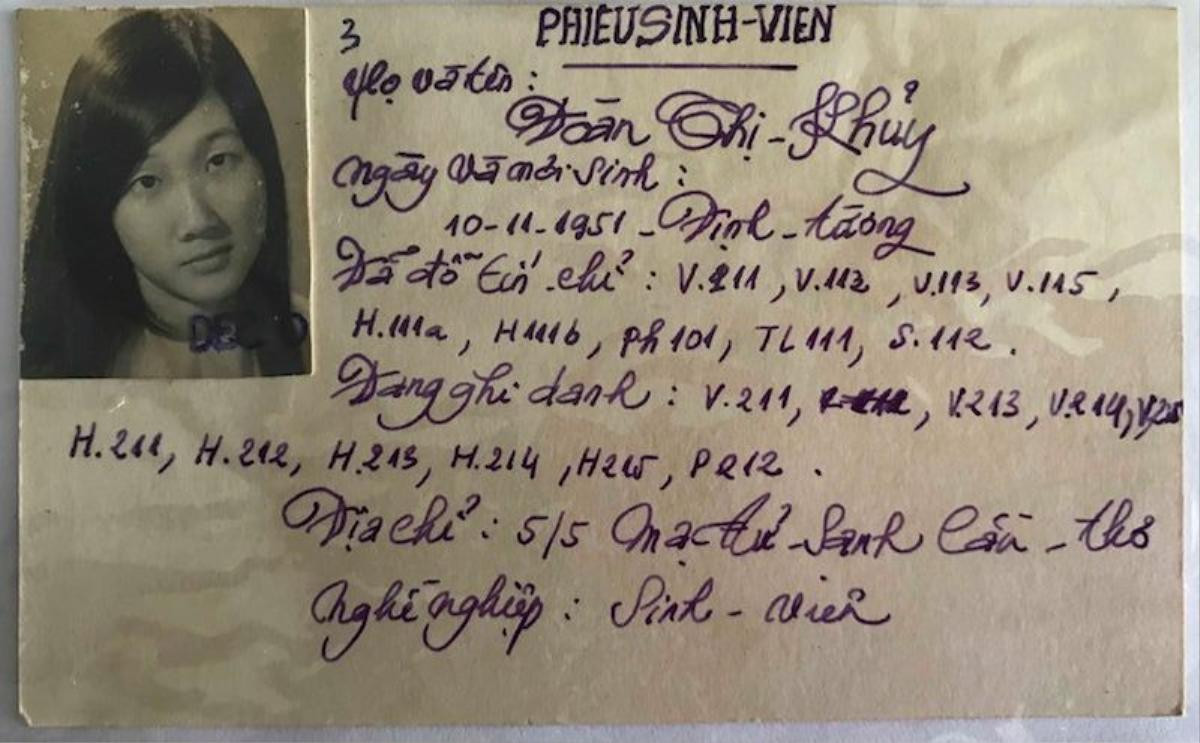 3
PHIẾU SINH-VIÊN
Họ và tên :
Đoàn Thị-Khủy
Ngày và nơi sinh :
10-11-1951 - Định-tường
Đã đỗ tín chỉ : V.211, V.112, V.113, V.115,
H.111a, H111b, Ph101, TL111, S.112.
Đang ghi danh : V.211, V.213, V.214, V.215
H.211, H.212, H.213, H.214, H215, P212.
Địa chỉ : 5/5 Mạc tử-Sanh Cần-thơ
Nghề nghiệp : Sinh-viên
DEC